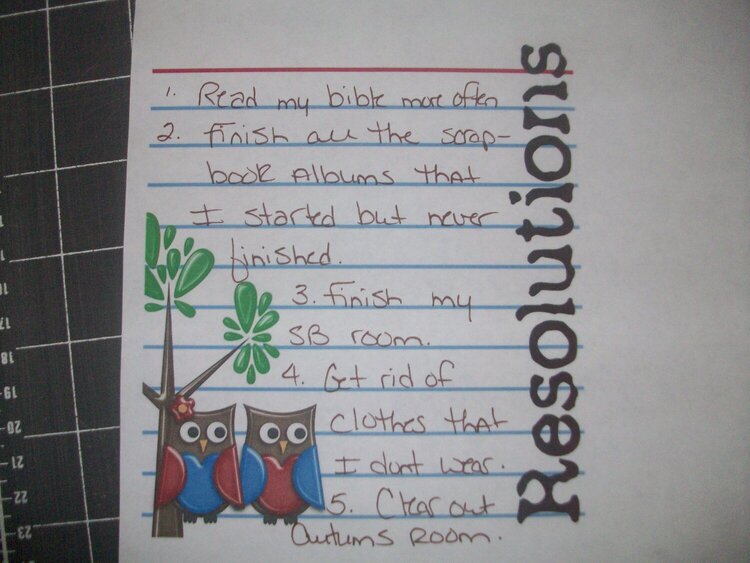 Resolutions
1. Read my bible more often
2. finish all the scrap-
book Albums that
I started but never
finished.
3. finish my
SB room.
4. Get rid of
clothes that
I dont wear.
5. Clear out
Autums Room.
17
18
19
20
21
22
23